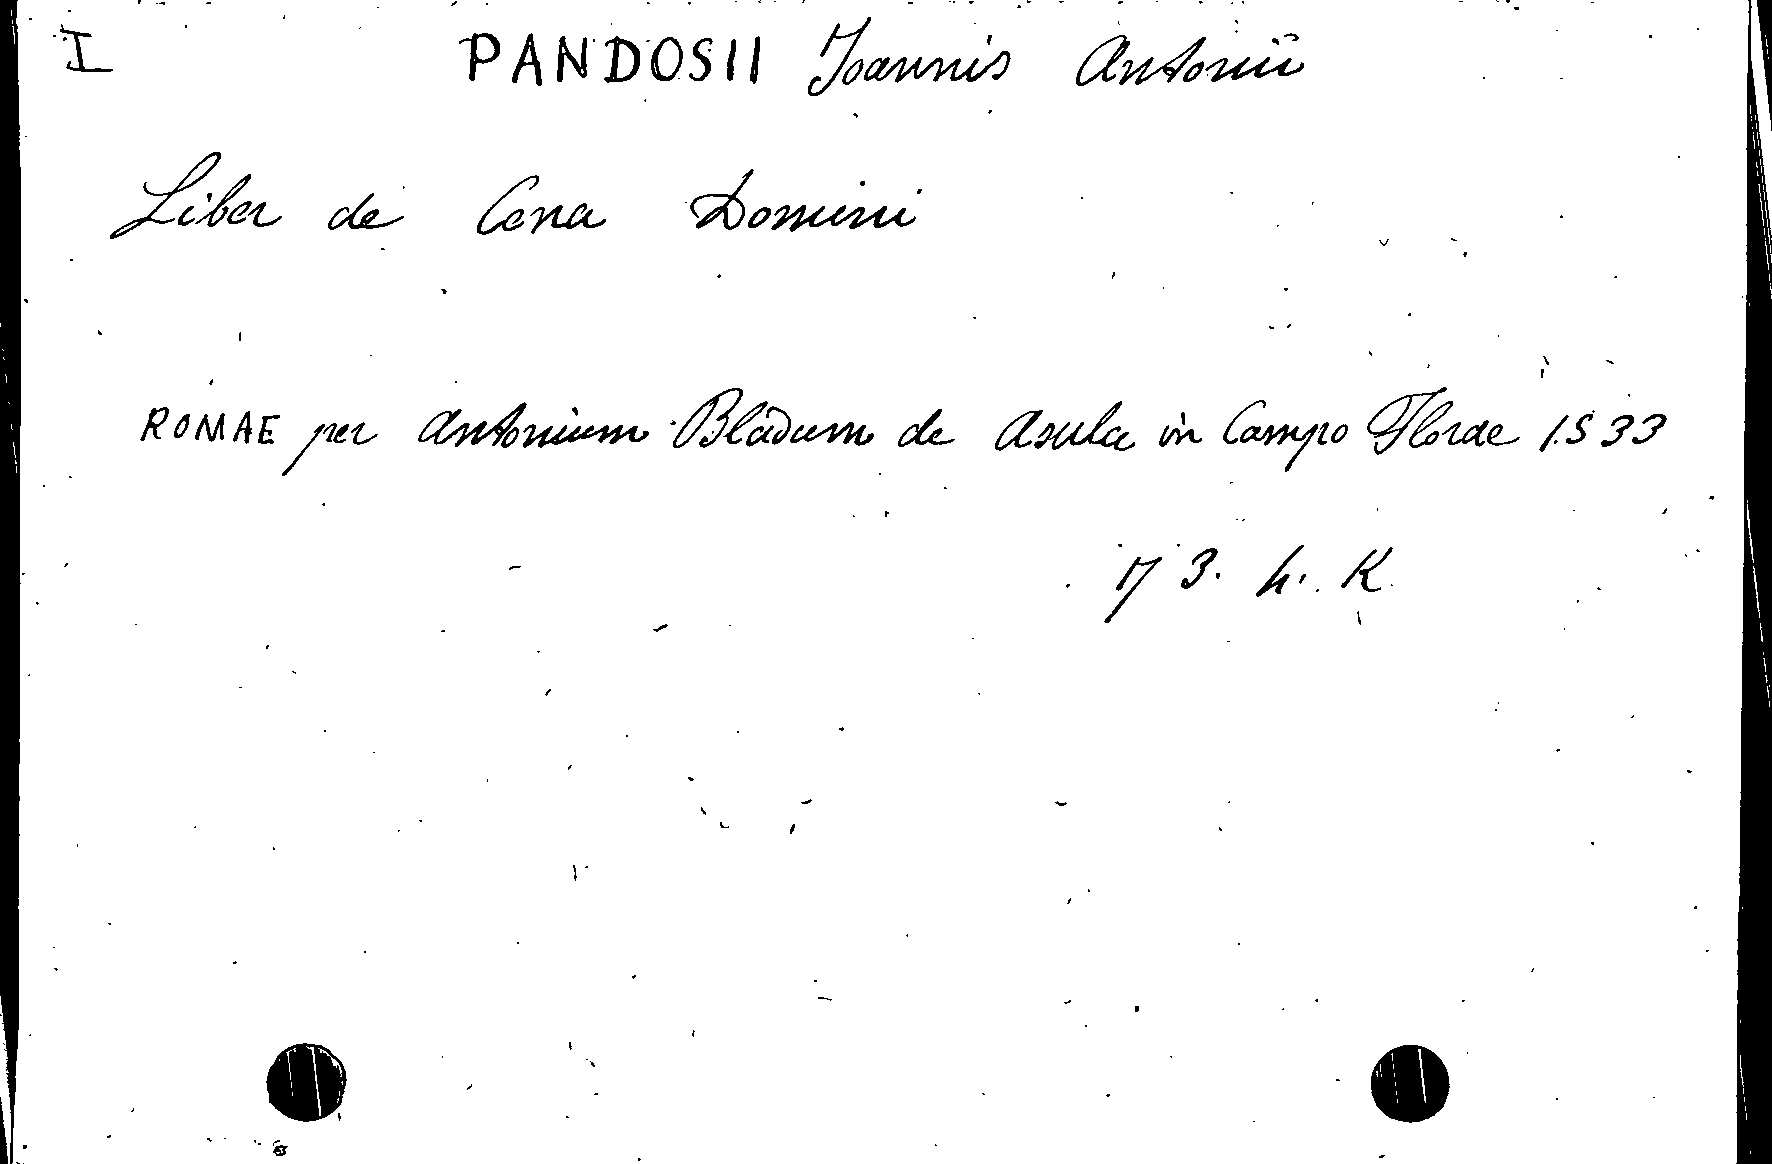 I PANDOSII Joannis Antonii
Liber de Cena Domini
ROMAE per Antonium Bladum de Asula in Campo Florae 1533
73. h. K